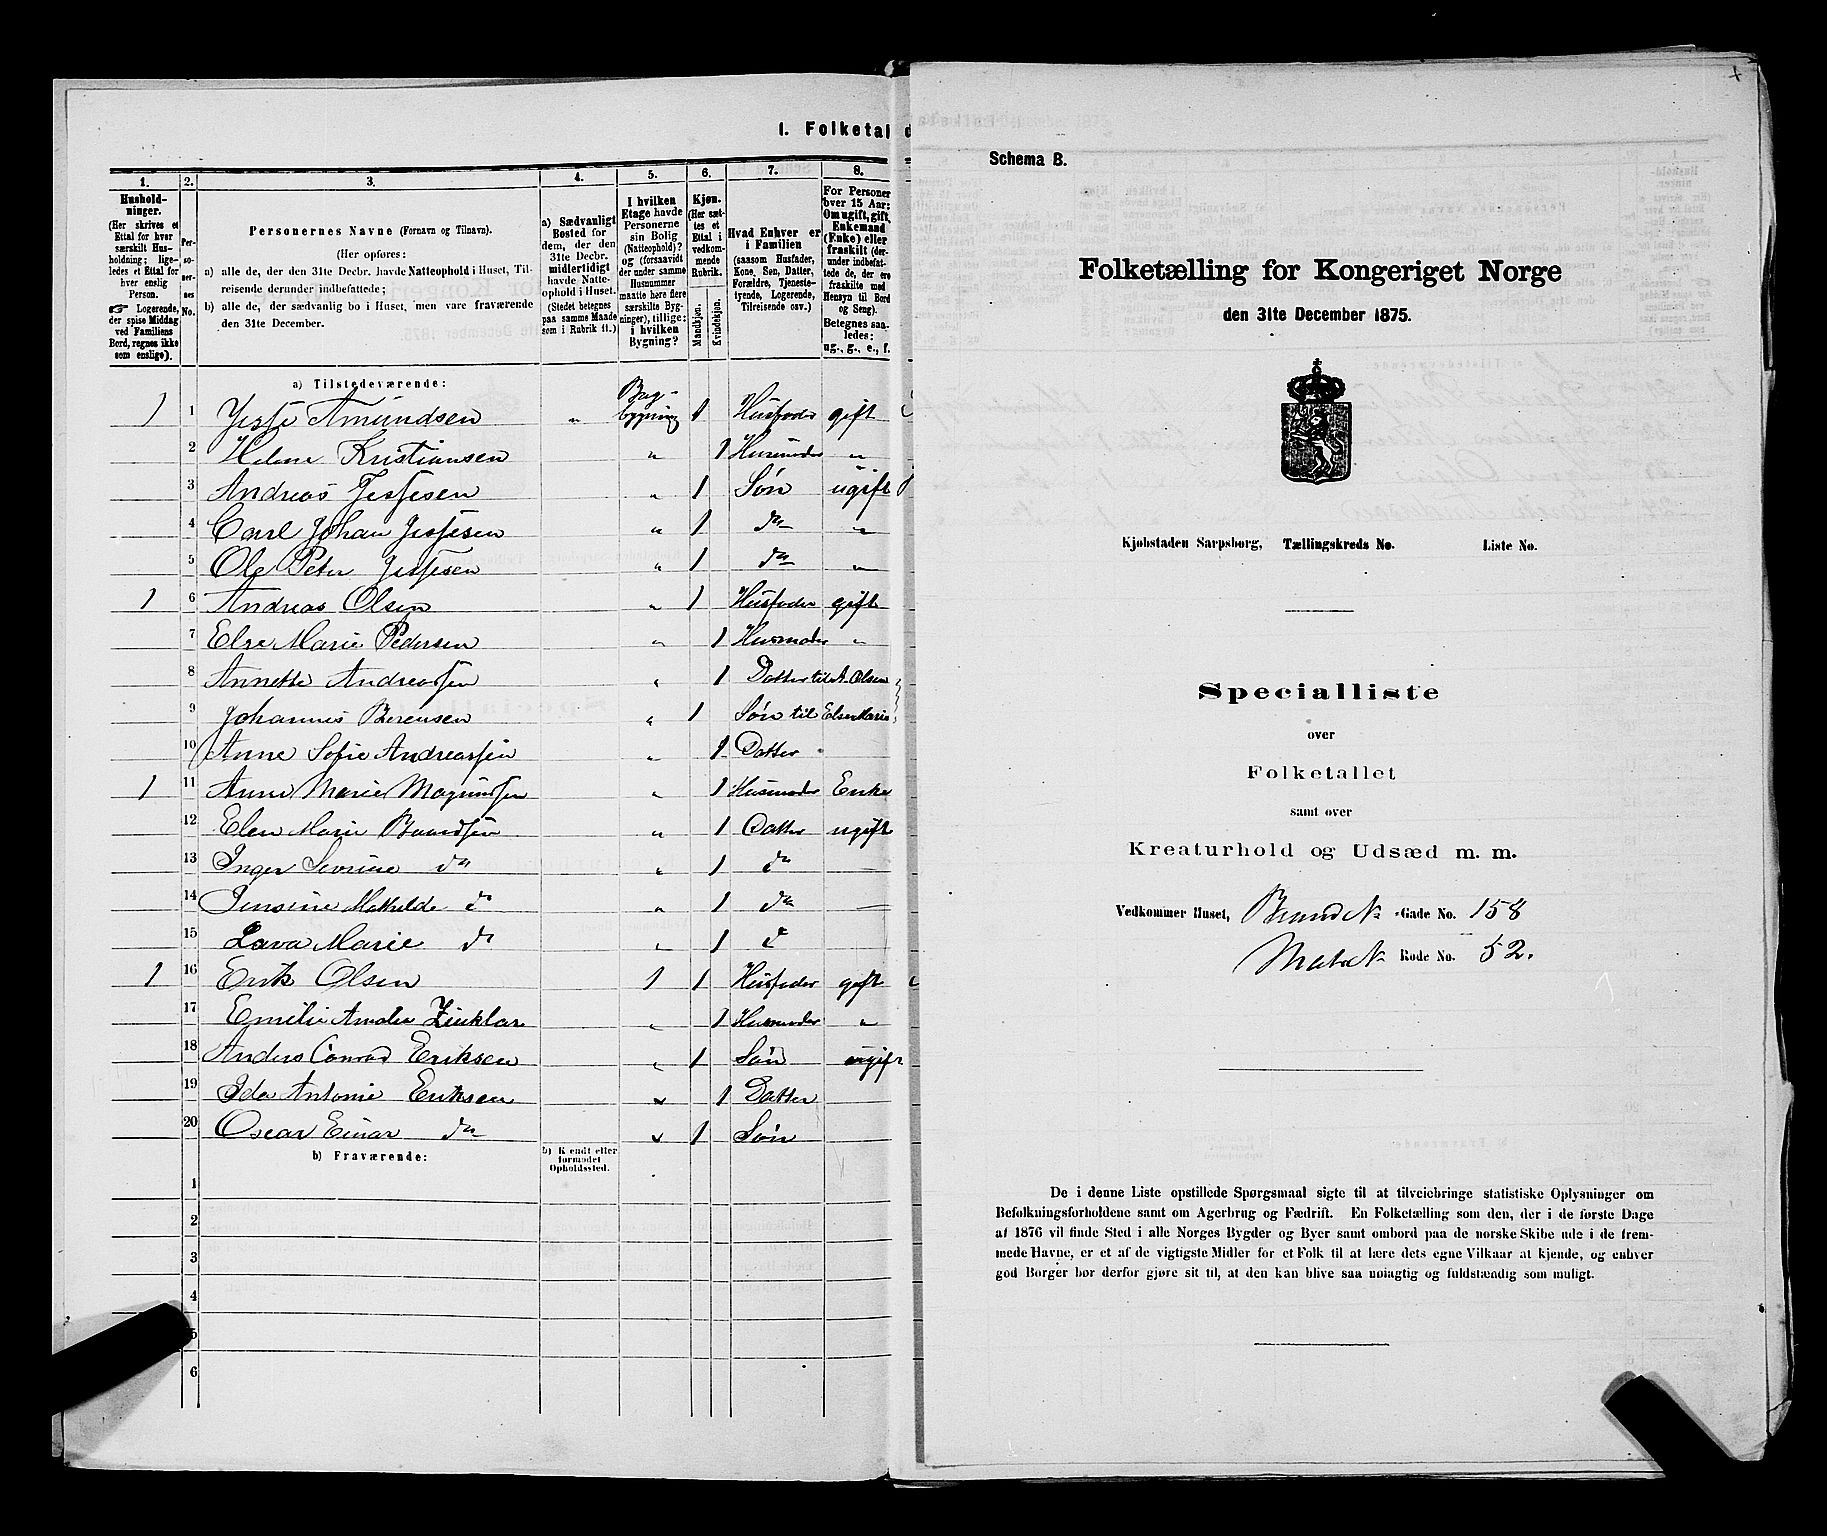 1. Folketal
1.
2.
3.
4.
5.
6.
7.
8.
Hushold-
ninger.
(Her skrives et
Ettal for hver
særskilt Hus-
holdning; lige-
ledes et Ettal for
hver enslig
Person.
Logerende,
der spise Middag
ved Familiens
Bord, regnes ikke
som enslige).
Per-
so-
ner-
nes
No.
Personernes Navne (Fornavn og Tilnavn).
(Her opføres:
a) alle de, der den 31te Decbr. havde Natteophold i Huset, Til-
reisende derunder indbefattede;
b) alle de, der sædvanlig bo i Huset, men vare fraværende
den 31te December.
a) Sædvanligt
Bosted for
dem, der den
31te Decbr.
midlertidigt
havde Natte-
ophold i Huset.
(Stedet betegnes
paa samme Maade
som i Rubrik 11.)
I hvilken
Etage havde
Personerne
sin Bolig
(Natteophold)?
og (forsaavidt
der under samme
Husnummer
maatte høre flere
særskilte Byg-
ninger), tillige:
i hvilken
Bygning?
Kjøn.
(Her sæt-
tes et
Ettal i
vedkom-
mende
Rubrik.
Mandkjøn.
Kvindekjøn.
Hvad Enhver er
i Familien
(saasom Husfader,
Kone, Søn, Datter,
Forældre, Tjeneste-
tyende, Logerende,
Tilreisende osv.)
For Personer
over 15 Aar:
Om ugift, gift,
Enkemand
(Enke) eller
fraskilt (der-
under indbefat-
tede de, der ere
fraskilte med
Hensyn til Bord
og Seng).
Betegnes saa-
ledes:
ug., g., e., f.
a) Tilstedeværende:
1 1 Jesse Amundsen " Bag-
bygning 1 Husfader gift
2 Helene Kristiansen " 1 Husmoder "
3 Andreas Jessesen " 1 Søn ugift
4 Carl Johan Jessesen " 1 do "
5 Ole Peter Jessesen " 1 do "
1 6 Andreas Olsen " 1 Husfader gift
7 Else Marie Pedersen " 1 Husmoder "
8 Annette Andreassen " 1 Datter til A. Olsen
9 Johannes Berensen " 1 Søn til Else Marie
10 Anne Sofie Andreassen " 1 Datter
1 11 Anne Marie Magnussen " 1 Husmoder Enke
12 Elen Marie Baardsen " 1 Datter ugift
13 Inger Severine do " 1 do
14 Jensine Mathilde do " 1 do
15 Lava Marie do " 1 do
1 16 Erik Olsen 1 1 Husfader gift
17 Emilie Amalie Zinklar " 1 Husmoder "
18 Anders Conrad Eriksen " 1 Søn ugift
19 Ida Antonie Eriksen " 1 Datter
20 Oscar Einar do " 1 Søn
b) Fraværende:
b) Kjendt eller
formodet
Opholdssted.
1
2
3
4
5
6
Schema B.
Folketælling for Kongeriget Norge
den 31te December 1875.
Kjøbstaden Sarpsborg, Tællingskreds No. Liste No.
Specialliste
over
Folketallet
samt over
Kreaturhold og Udsæd m. m.
Vedkommer Huset, Brand No Gade No. 158
Matr No Rode No. 52.
De i denne Liste opstillede Spørgsmaal sigte til at tilveiebringe statistiske Oplysninger om
Befolkningsforholdene samt om Agerbrug og Fædrift. En Folketælling som den, der i de første Dage
af 1876 vil finde Sted i alle Norges Bygder og Byer samt ombord paa de norske Skibe ude i de frem-
mede Havne, er et af de vigtigste Midler for et Folk til at lære dets egne Vilkaar at kjende, og enhver
god Borger bør derfor gjøre sit til, at den kan blive saa nøiagtig og fuldstændig som muligt.